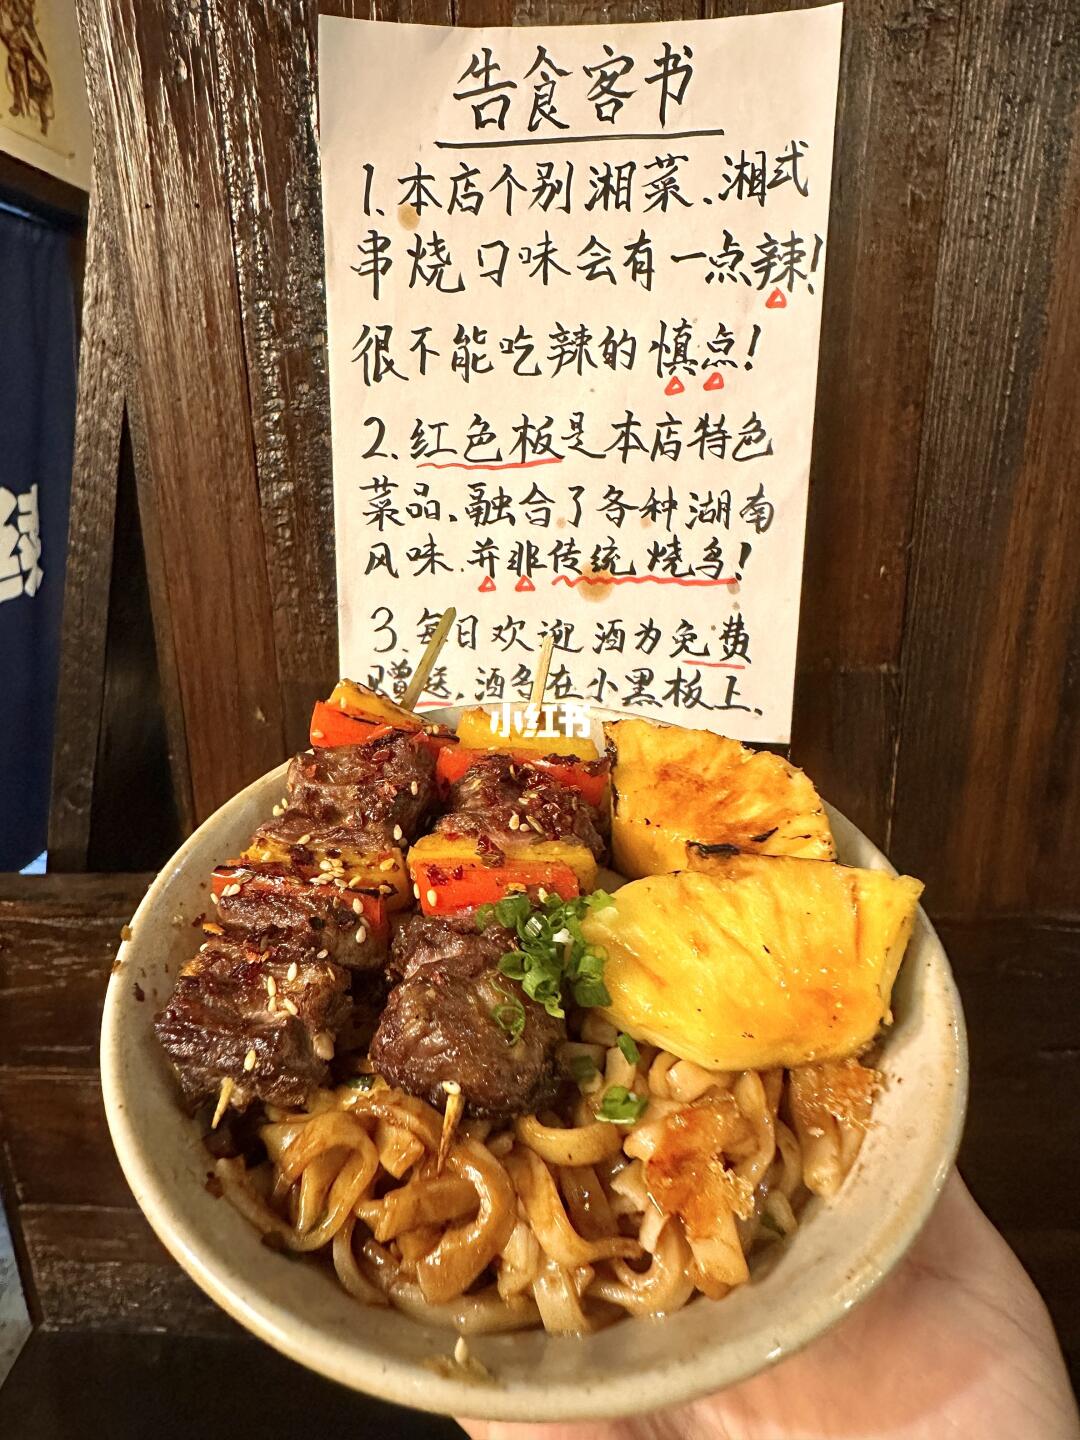 告食客书
1.本店个别湘菜、湘式
串烧口味会有一点辣!
很不能吃辣的慎点!
2.红色板是本店特色
菜品、融合了各种湖南
风味.并非传统烧鸟!
3.每日欢迎酒为免费
赠送,酒名在小黑板上.
小红书